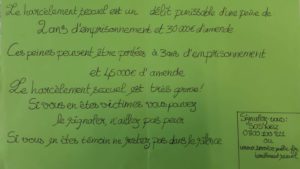 Le harcèlement sexuel est un délit punissable d'une peine de
2 ans d'emprisonnement et 30 000€ d'amende
Ces peines peuvent être portées à 3 ans d'emprisonnement
et 45 000€ d'amende
Le harcèlement sexuel est très grave!
Si vous en êtes victimes vous pouvez
le signaler, n'allez pas peur
Si vous en êtes témoin ne restez pas dans le silence
Signalez-vous:
0800 200 000
ou
www.service-public.fr